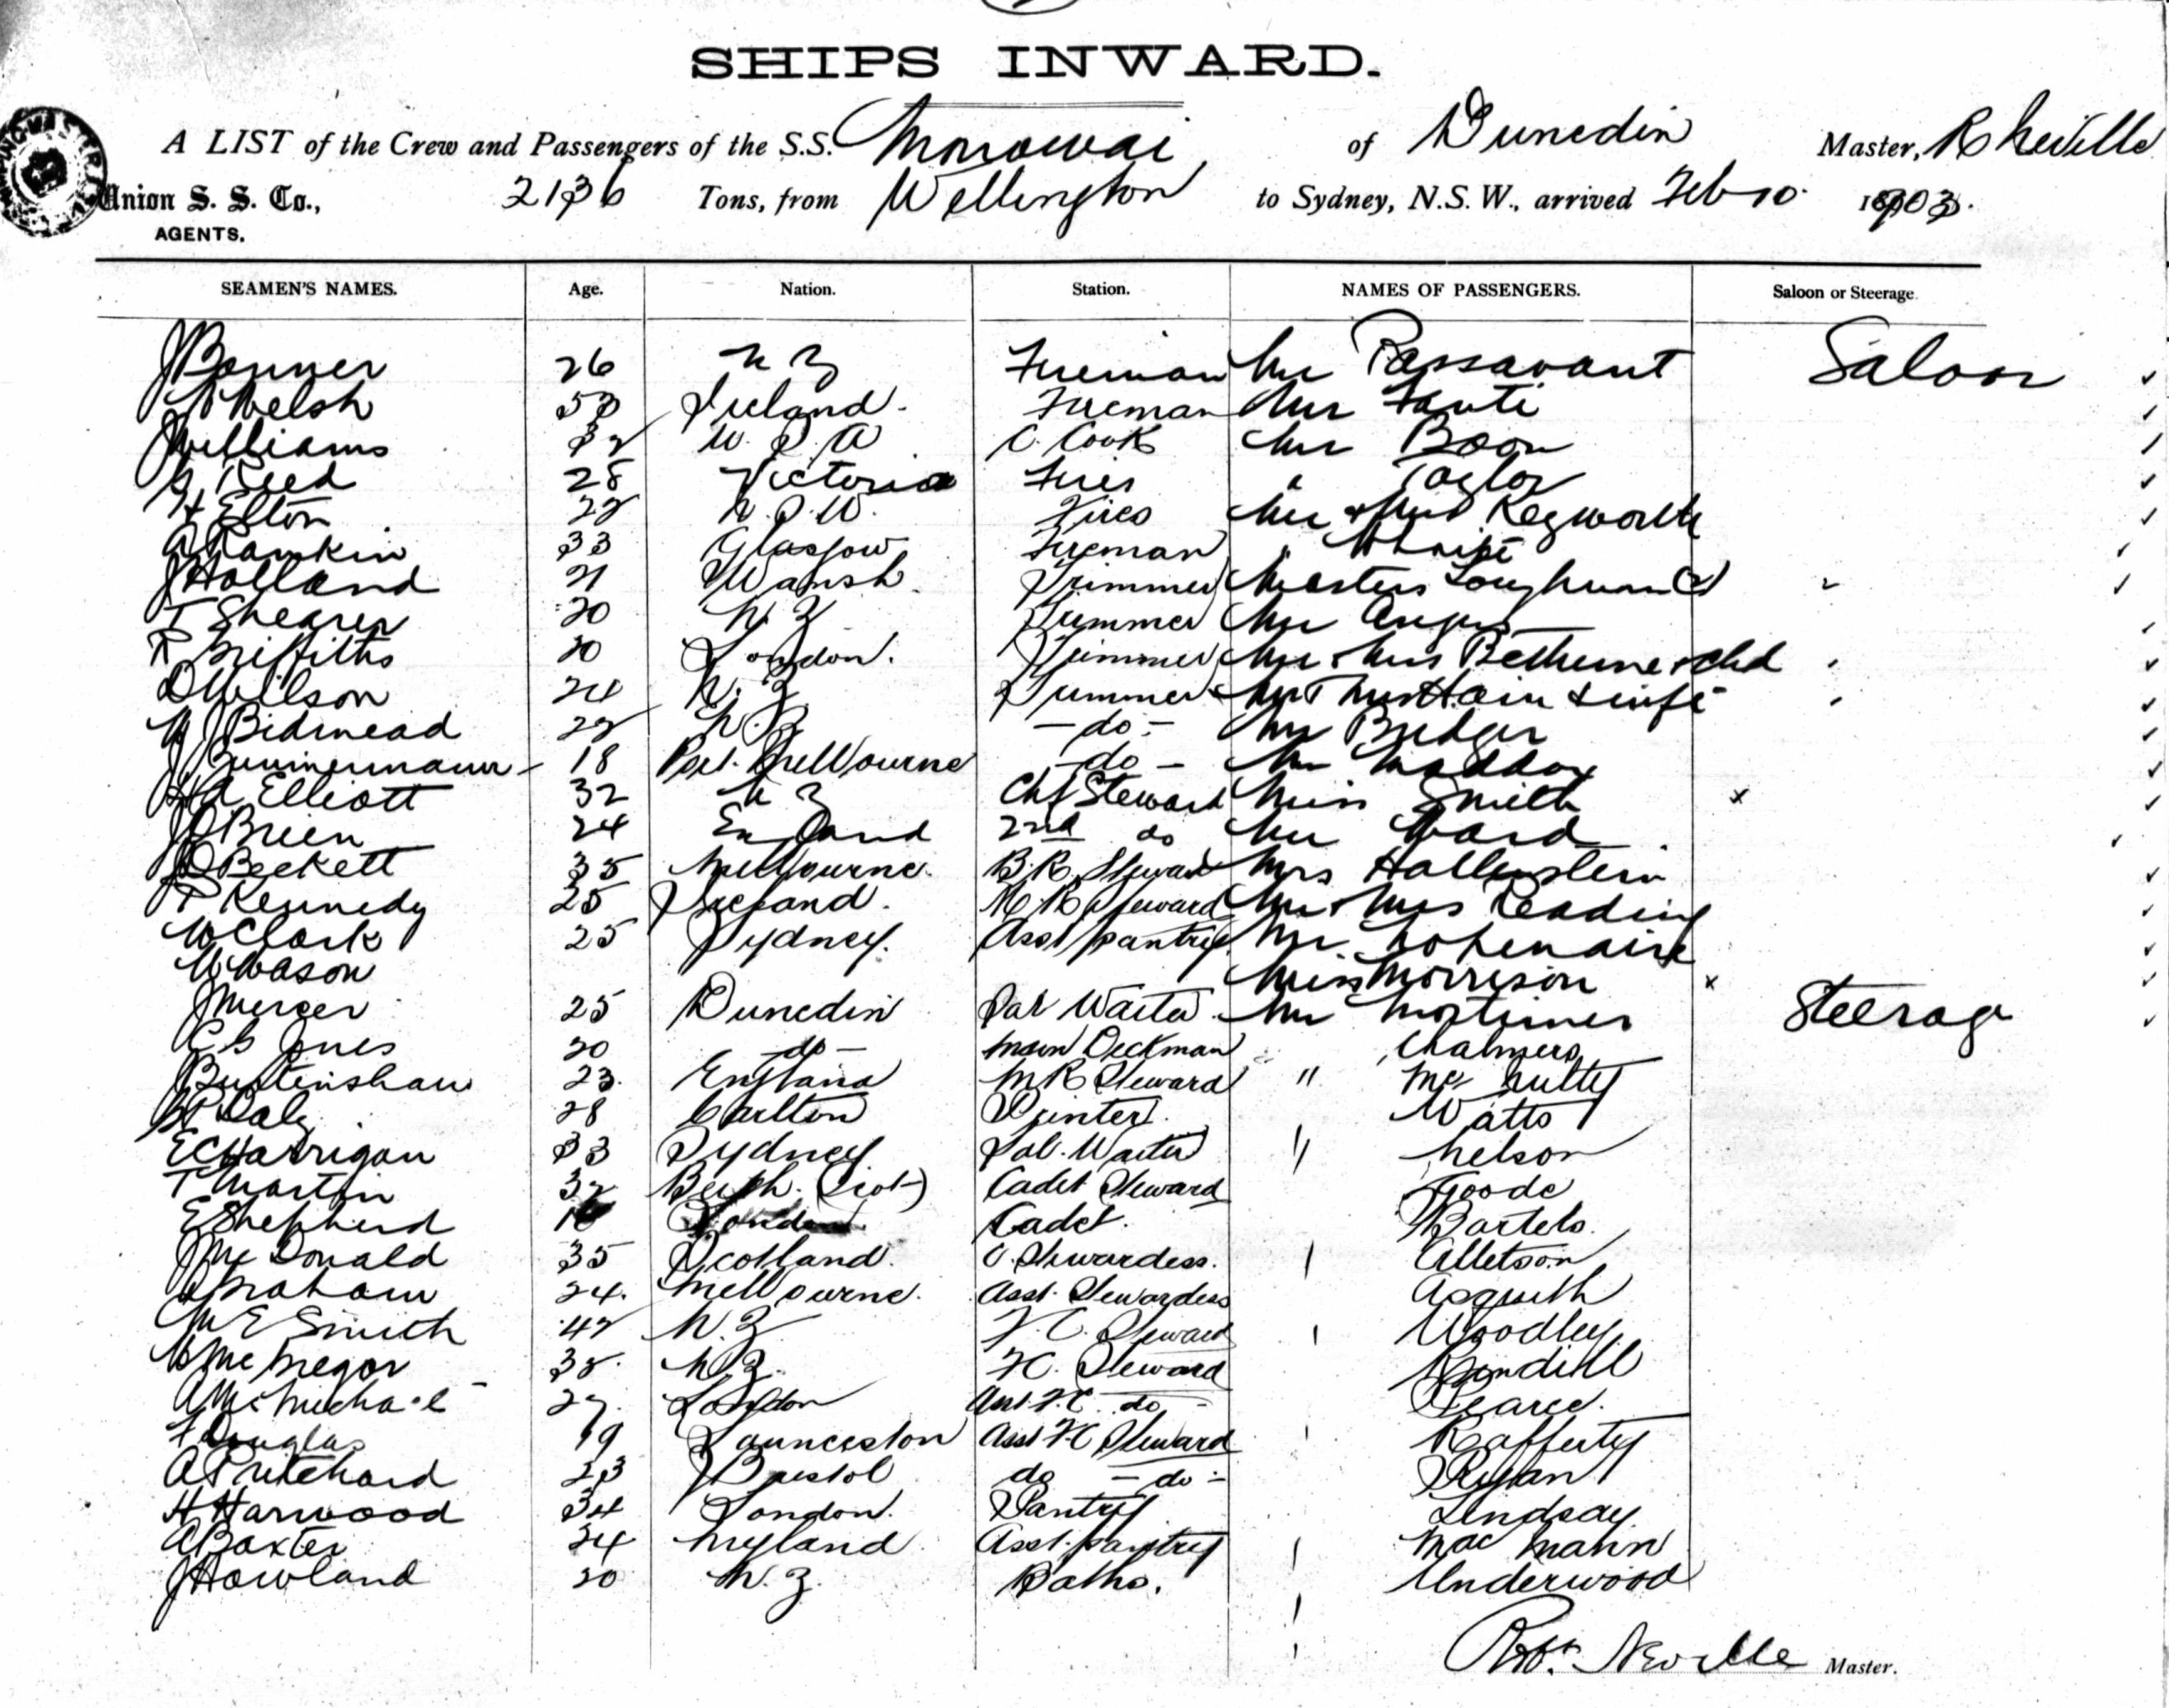 SHIPS INWARD.
A LIST of the Crew and Passengers of the S.S. Monowai of Dunedin Master, R Neville
Union S. S. Co., 2136 Tons, from Wellington to Sydney, N.S.W., arrived Feb 10 1903.
AGENTS.
SEAMEN'S NAMES. Age. Nation. Station. NAMES OF PASSENGERS. Saloon or Steerage.
J Bonner 26 N Z Fireman Mr Passavant Saloon
Welsh 53 Ireland. Fireman Mr
Williams 32 U. S. A C. Cook Mr Boon
G Reed 28 Victoria Fires " Taylor
H Elton 22 N. S. W. Fires Mr & Mrs Kegworth
A Rankin 33 Glasgow Fireman "
J Holland 21 Trimmer Masters (2) "
T Shearer 20 N. Z Trimmer Mr Angus
R Griffiths 20 London. Trimmer Mr & Mrs Bethune & chd "
D Willson 24 N. Z Trimmer "
Bidmead 22 N. Z - do - Mr
18 Port Melbourne - do - Mr Maddox
A Elliott 32 N Z Chf Steward Miss Smith x
J OBrien 24 England 2nd do Mr Ward
Beckett 35 Melbourne. B. R. Steward Mrs Hallenstein
P Kennedy 25 Ireland. Steward Mr & Mrs Reading
W Clark 25 Sydney. Asst pantry Mr.
W Wason Miss Morrison x
J Mercer 25 Dunedin Sal Waiter Mr Mortimer Steerage
C G Jones 20 - do - Deckman Chalmers
Buttinshaw 23. England M R Steward " Mc Nulty
Daly 28 Carlton Printer. Watts
E C Harrigan 33 Sydney Sal. Waiter " Nelson
T Martin 32 (Scot) Cadet Steward Goode
E Shepherd London. Cadet. Bartels.
J Mc Donald 35 Scotland. Stewardess. Alletson
Graham 24. Melbourne. Asst. Stewardess Asquith
M E Smith 42 N. Z Steward Woodley
W McGregor 38. N. Z. F. C. Steward
A McMichael 27. London Asst F. C. do - Pearce.
F Douglas 19 Launceston Asst F C Steward Rafferty
A Pritchard 23 Bristol do - do - Ryan
H Harwood 34 London. Pantry Lindsay
A Baxter 24 Asst. pantry Mac Mahin
J Howland 20 N. Z. Baths. Underwood
Robt. Neville Master.